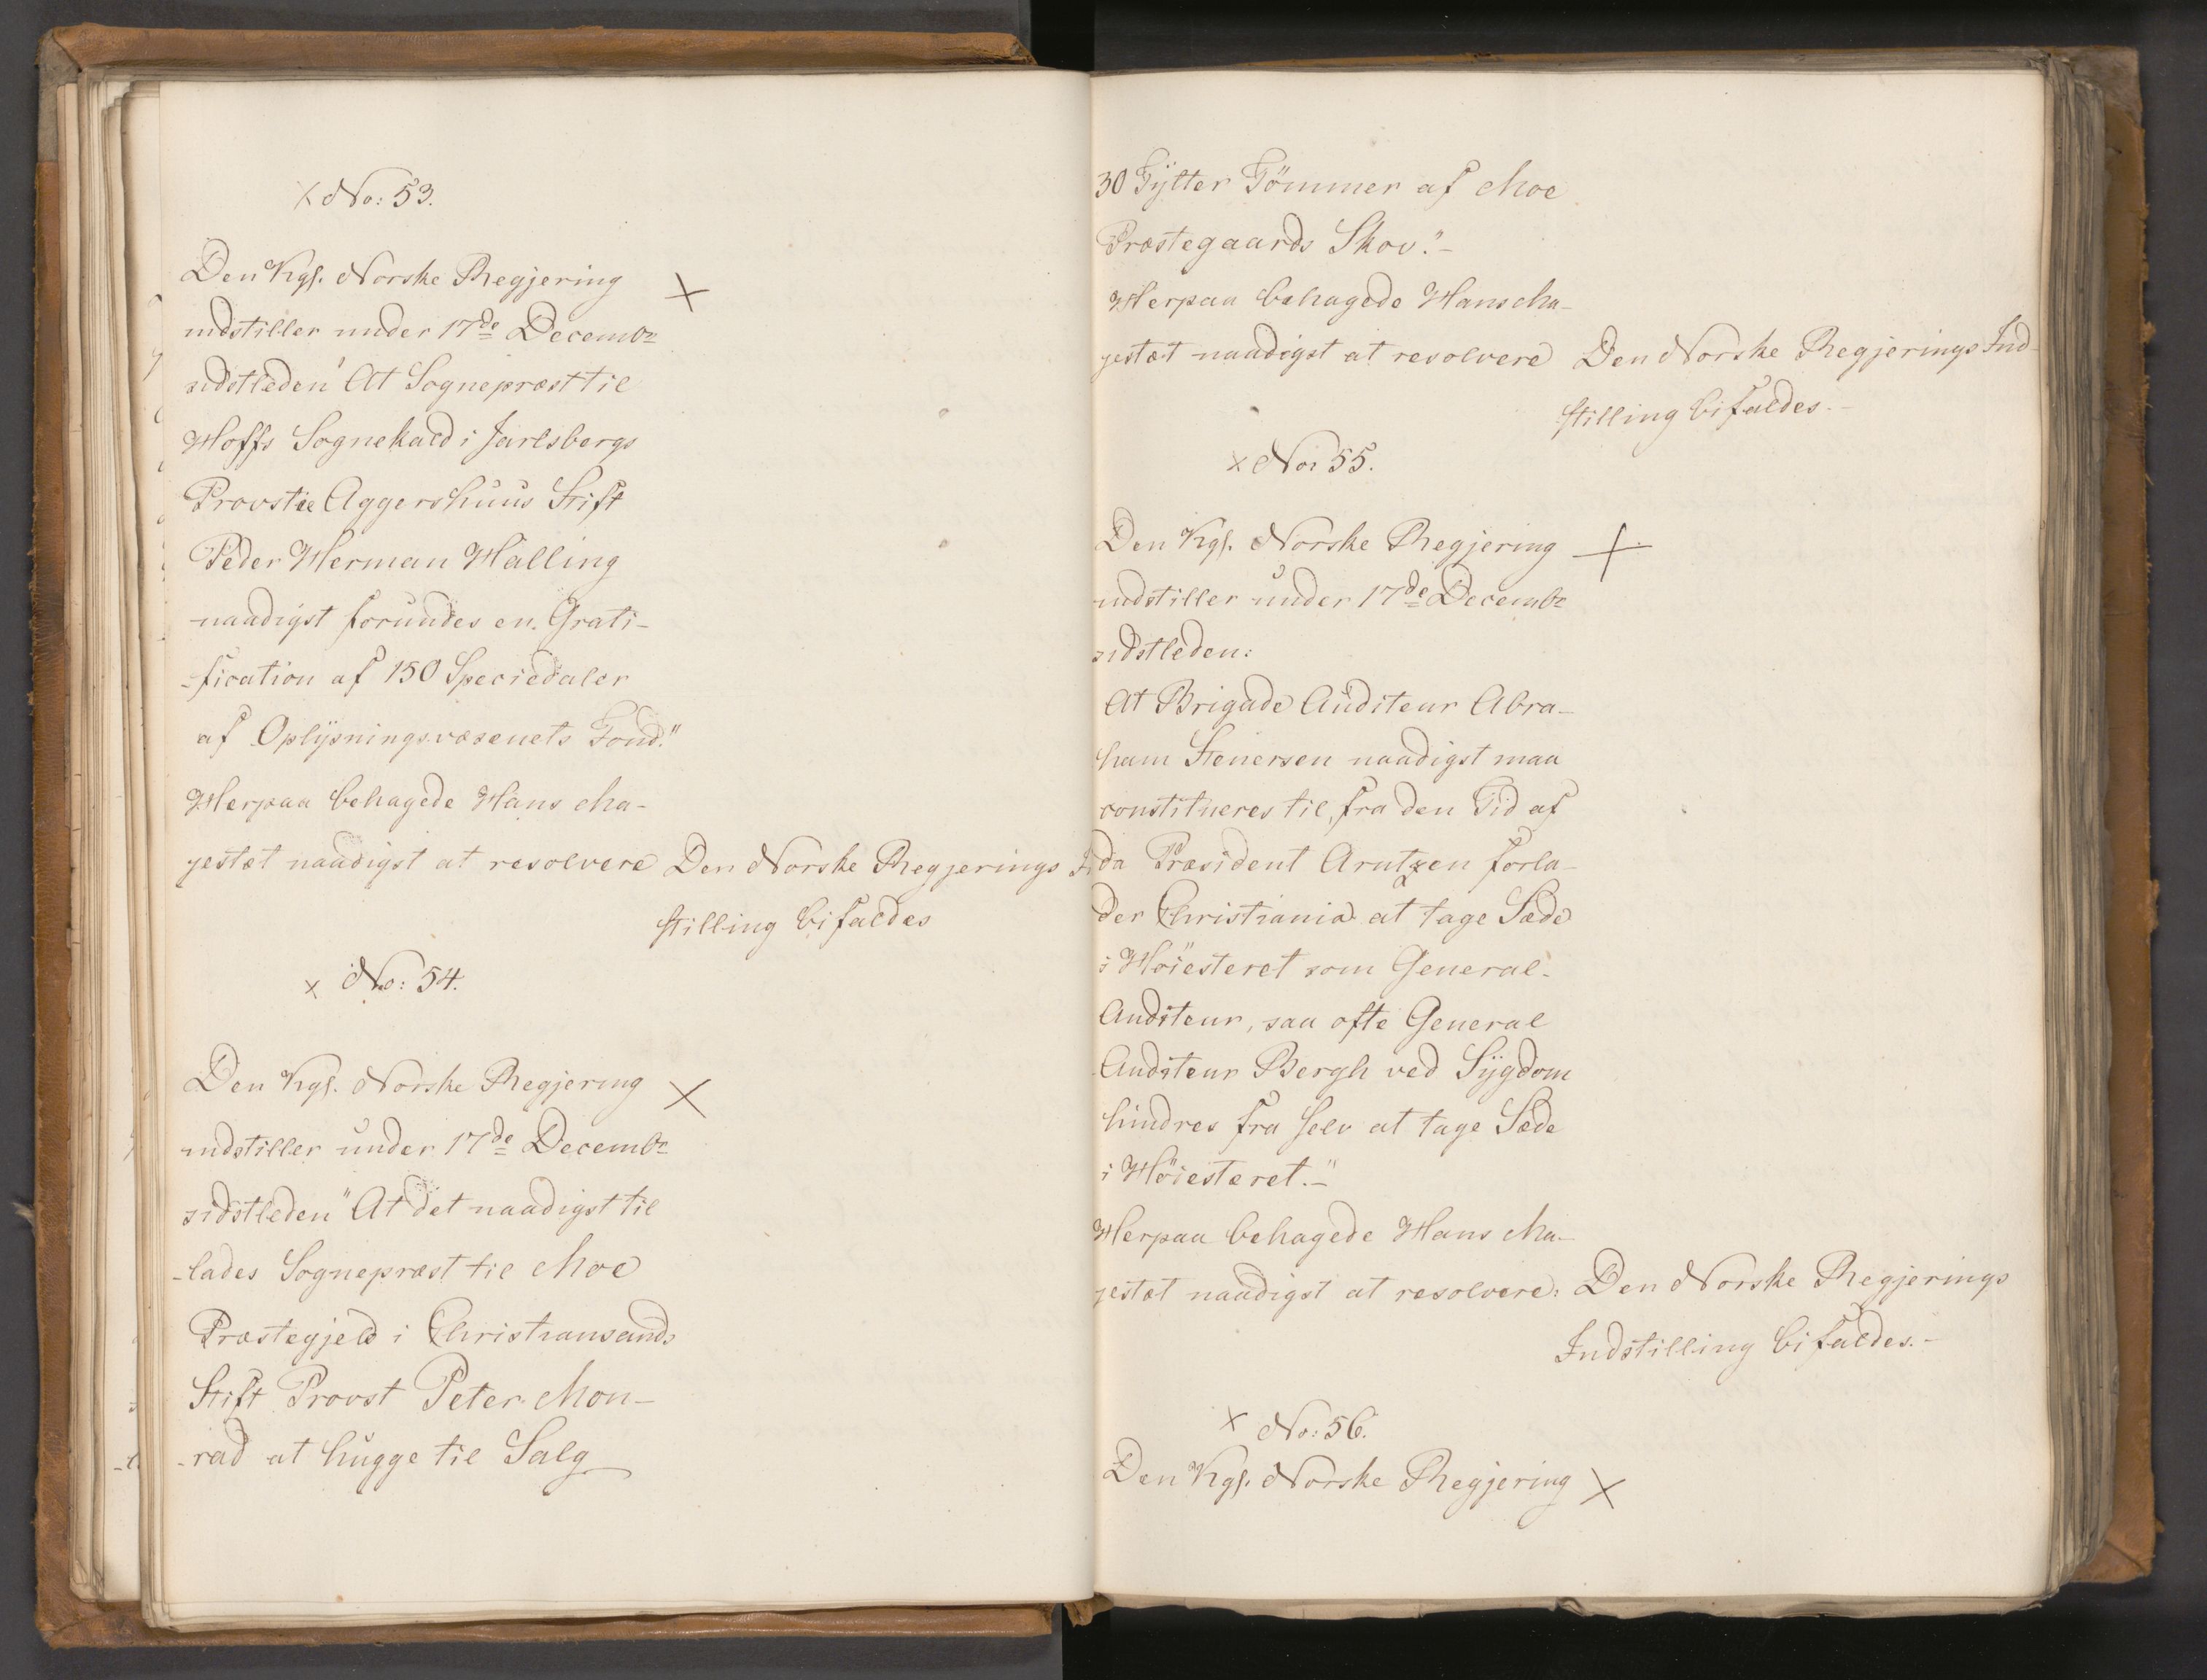 × No: 53.
Den Kgs. Norske Regjering ×
indstiller under 17de Decembr
sidstleden "At Sognepræst til
Hoffs Sognekald i Jarlsbergs
Provstie Aggershuus Stift
Peder Herman Halling
naadigst forundes en Grati-
-fication af 150 Speciedaler
af Oplysningsvæsenets Fond."
Herpaa behagede Hans Ma-
jestæt naadigst at resolvere Den Norske Regjerings
stilling bifaldes
× No: 54.
Den Kgs. Norske Regjering ×
indstiller under 17de Decembr
sidstleden "At det naadigst til
-lades Sognepræst til Moe
Præstegjeld i Christiansands
Stift Provst Peter Mon-
-rad at hugge til Salg
30 Tylter Tömmer af Moe
Præstegaards Skov."-
Herpaa behagede Hans Ma-
jestæt naadigst at resolvere Den Norske Regjerings Ind-
stilling bifaldes.-
× No: 55.
Den Kgs. Norske Regjering ×
indstiller under 17de Decembr
sidstleden:
At Brigade Auditeur Abra-
ham Stenersen naadigst maa
constitueres til, fra den Tid af
da Præsident Arntzen forla-
der Christiania at tage Sæde
i Höiesteret som General-
Auditeur, saa ofte General
Auditeur Bergh ved Sygdom
hindres fra selv at tage Sæde
i Höiesteret."-
Herpaa behagede Hans Ma-
jestæt naadigst at resolvere: Den Norske Regjerings
Indstilling bifaldes.-
× No: 56.
Den Kgs. Norske Regjering ×